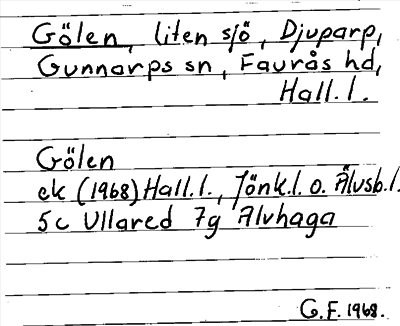 Gölen, liten sjö, Djuparp,
Gunnarps sn, Faurås hd,
Hall. l.
Gölen
ek (1968) Hall. l., Jönk. l. o. Älvsb. l.
5c Ullared 7g Älvhaga
G. F. 1968.